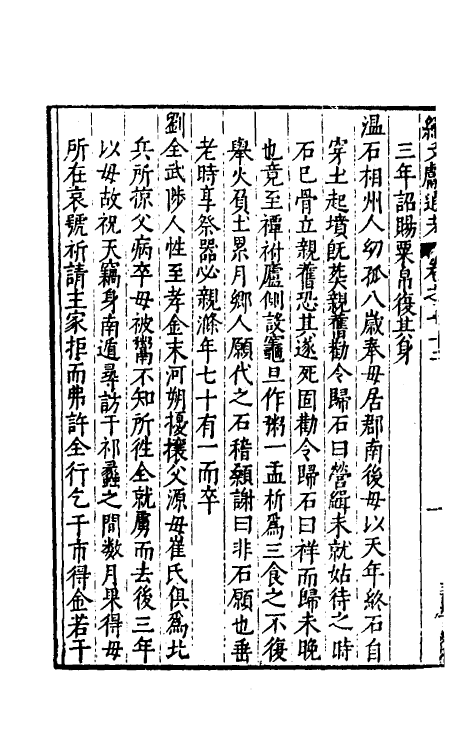 續文獻通考 卷之七十三
三年詔賜粟帛復其身
温石相州人幼孤八歲奉母居郡南後母以天年終石自
穿土起墳既葬親舊勸令歸石曰營緝未就姑待之時
石已骨立親舊恐其遂死固勸令歸石曰祥而歸未晚
也竟至禫祔廬側設竈旦作粥一盂析爲三食之不復
舉火負土累月鄉人願代之石稽顙謝曰非石願也垂
老時享祭器必親滌年七十有一而卒
劉全武陟人性至孝金末河朔擾攘父源母崔氏俱爲北
兵所掠父病卒母被鬻不知所徃全就虜而去後三年
以母故祝天竊身南遁尋訪于祁蠡之間數月果得母
所在哀號祈請主家拒而弗許全行乞于市得金若干
一